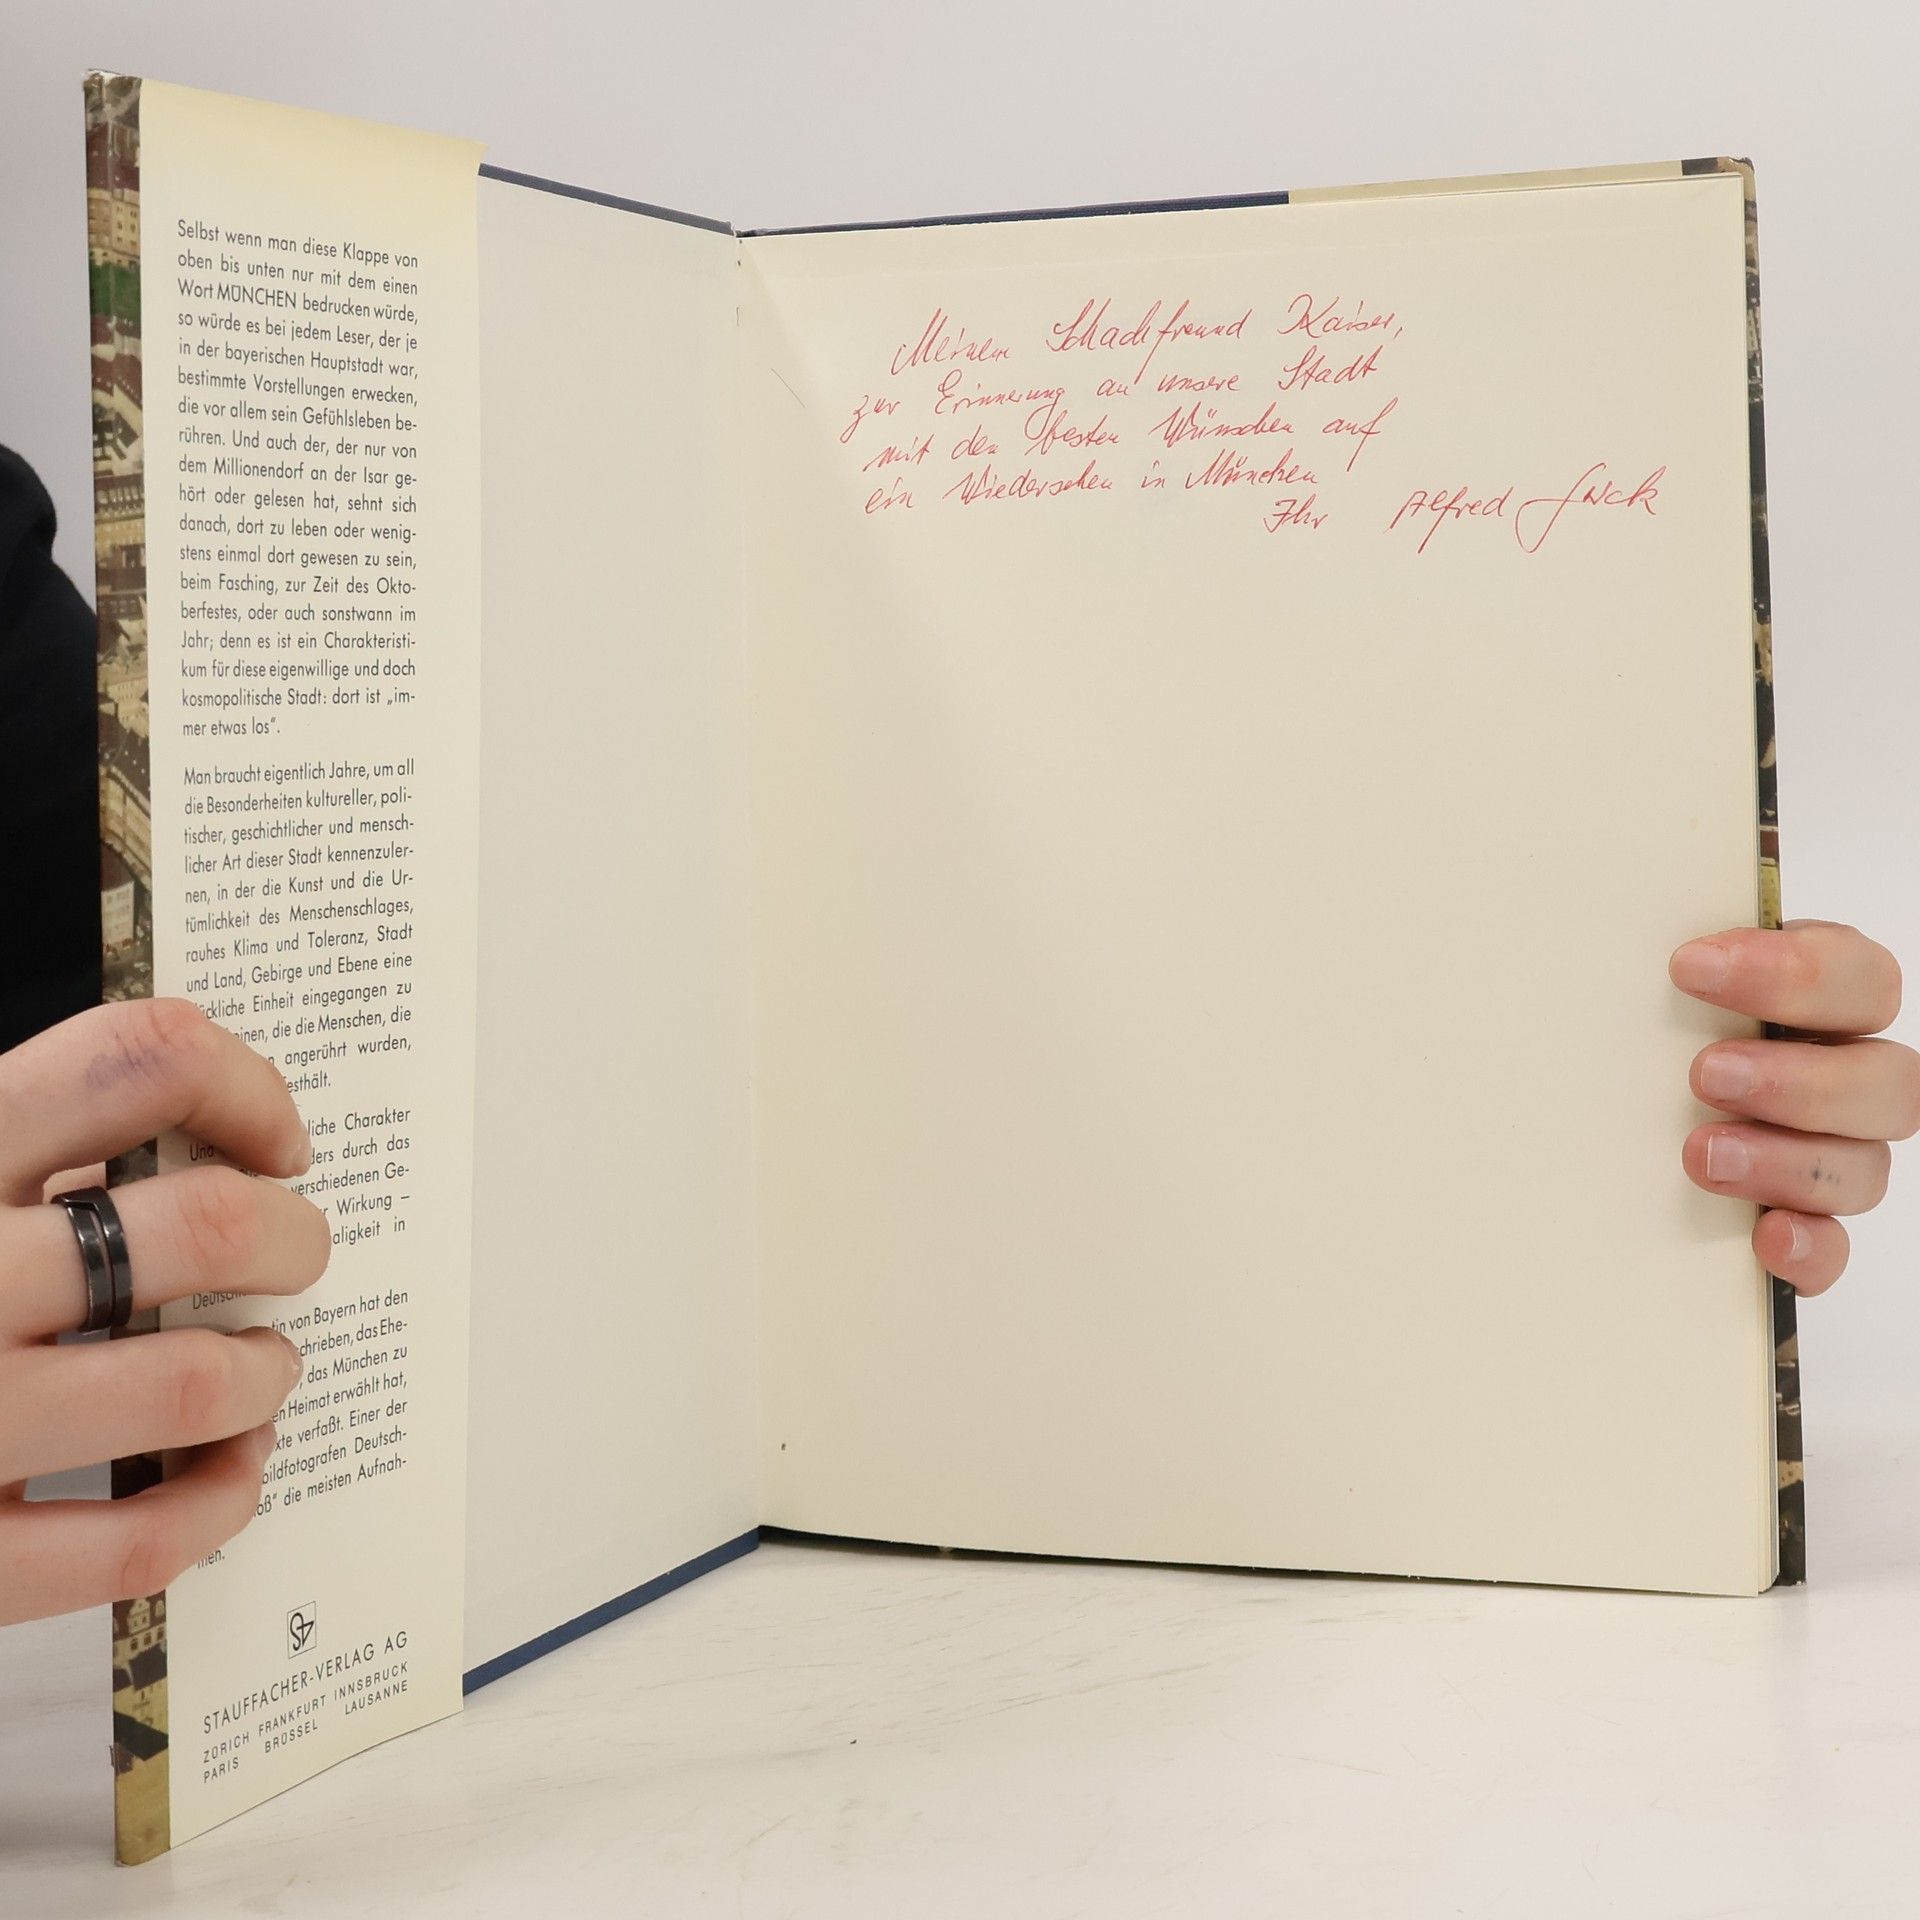 Selbst wenn man diese Klappe von
oben bis unten nur mit dem einen
Wort MÜNCHEN bedrucken würde,
so würde es bei jedem Leser, der je
in der bayerischen Hauptstadt war,
bestimmte Vorstellungen erwecken,
die vor allem sein Gefühlsleben be-
rühren. Und auch der, der nur von
dem Millionendorf an der Isar ge-
hört oder gelesen hat, sehnt sich
danach, dort zu leben oder wenig-
stens einmal dort gewesen zu sein,
beim Fasching, zur Zeit des Okto-
berfestes, oder auch sonstwann im
Jahr; denn es ist ein Charakteristi-
kum für diese eigenwillige und doch
kosmopolitische Stadt: dort ist „im-
mer etwas los“.
Man braucht eigentlich Jahre, um all
die Besonderheiten kultureller, poli-
tischer, geschichtlicher und mensch-
licher Art dieser Stadt kennenzuler-
nen, in der die Kunst und die Ur-
tümlichkeit des Menschenschlages,
rauhes Klima und Toleranz, Stadt
und Land, Gebirge und Ebene eine
Einheit eingegangen zu
die die Menschen, die
angerührt wurden,
Und Charakter
durch das
verschiedenen Ge-
Wirkung –
in
von Bayern hat den
das Ehe-
das München zu
Heimat erwählt hat,
verfaßt. Einer der
Deutsch-
die meisten Aufnah-
men.
STAUFFACHER-VERLAG AG
ZÜRICH FRANKFURT INNSBRUCK
PARIS BRÜSSEL LAUSANNE
Meinem Schachfreund Kaiser,
zur Erinnerung an unsere Stadt
mit den besten Wünschen auf
ein Wiedersehen in München
Ihr Alfred